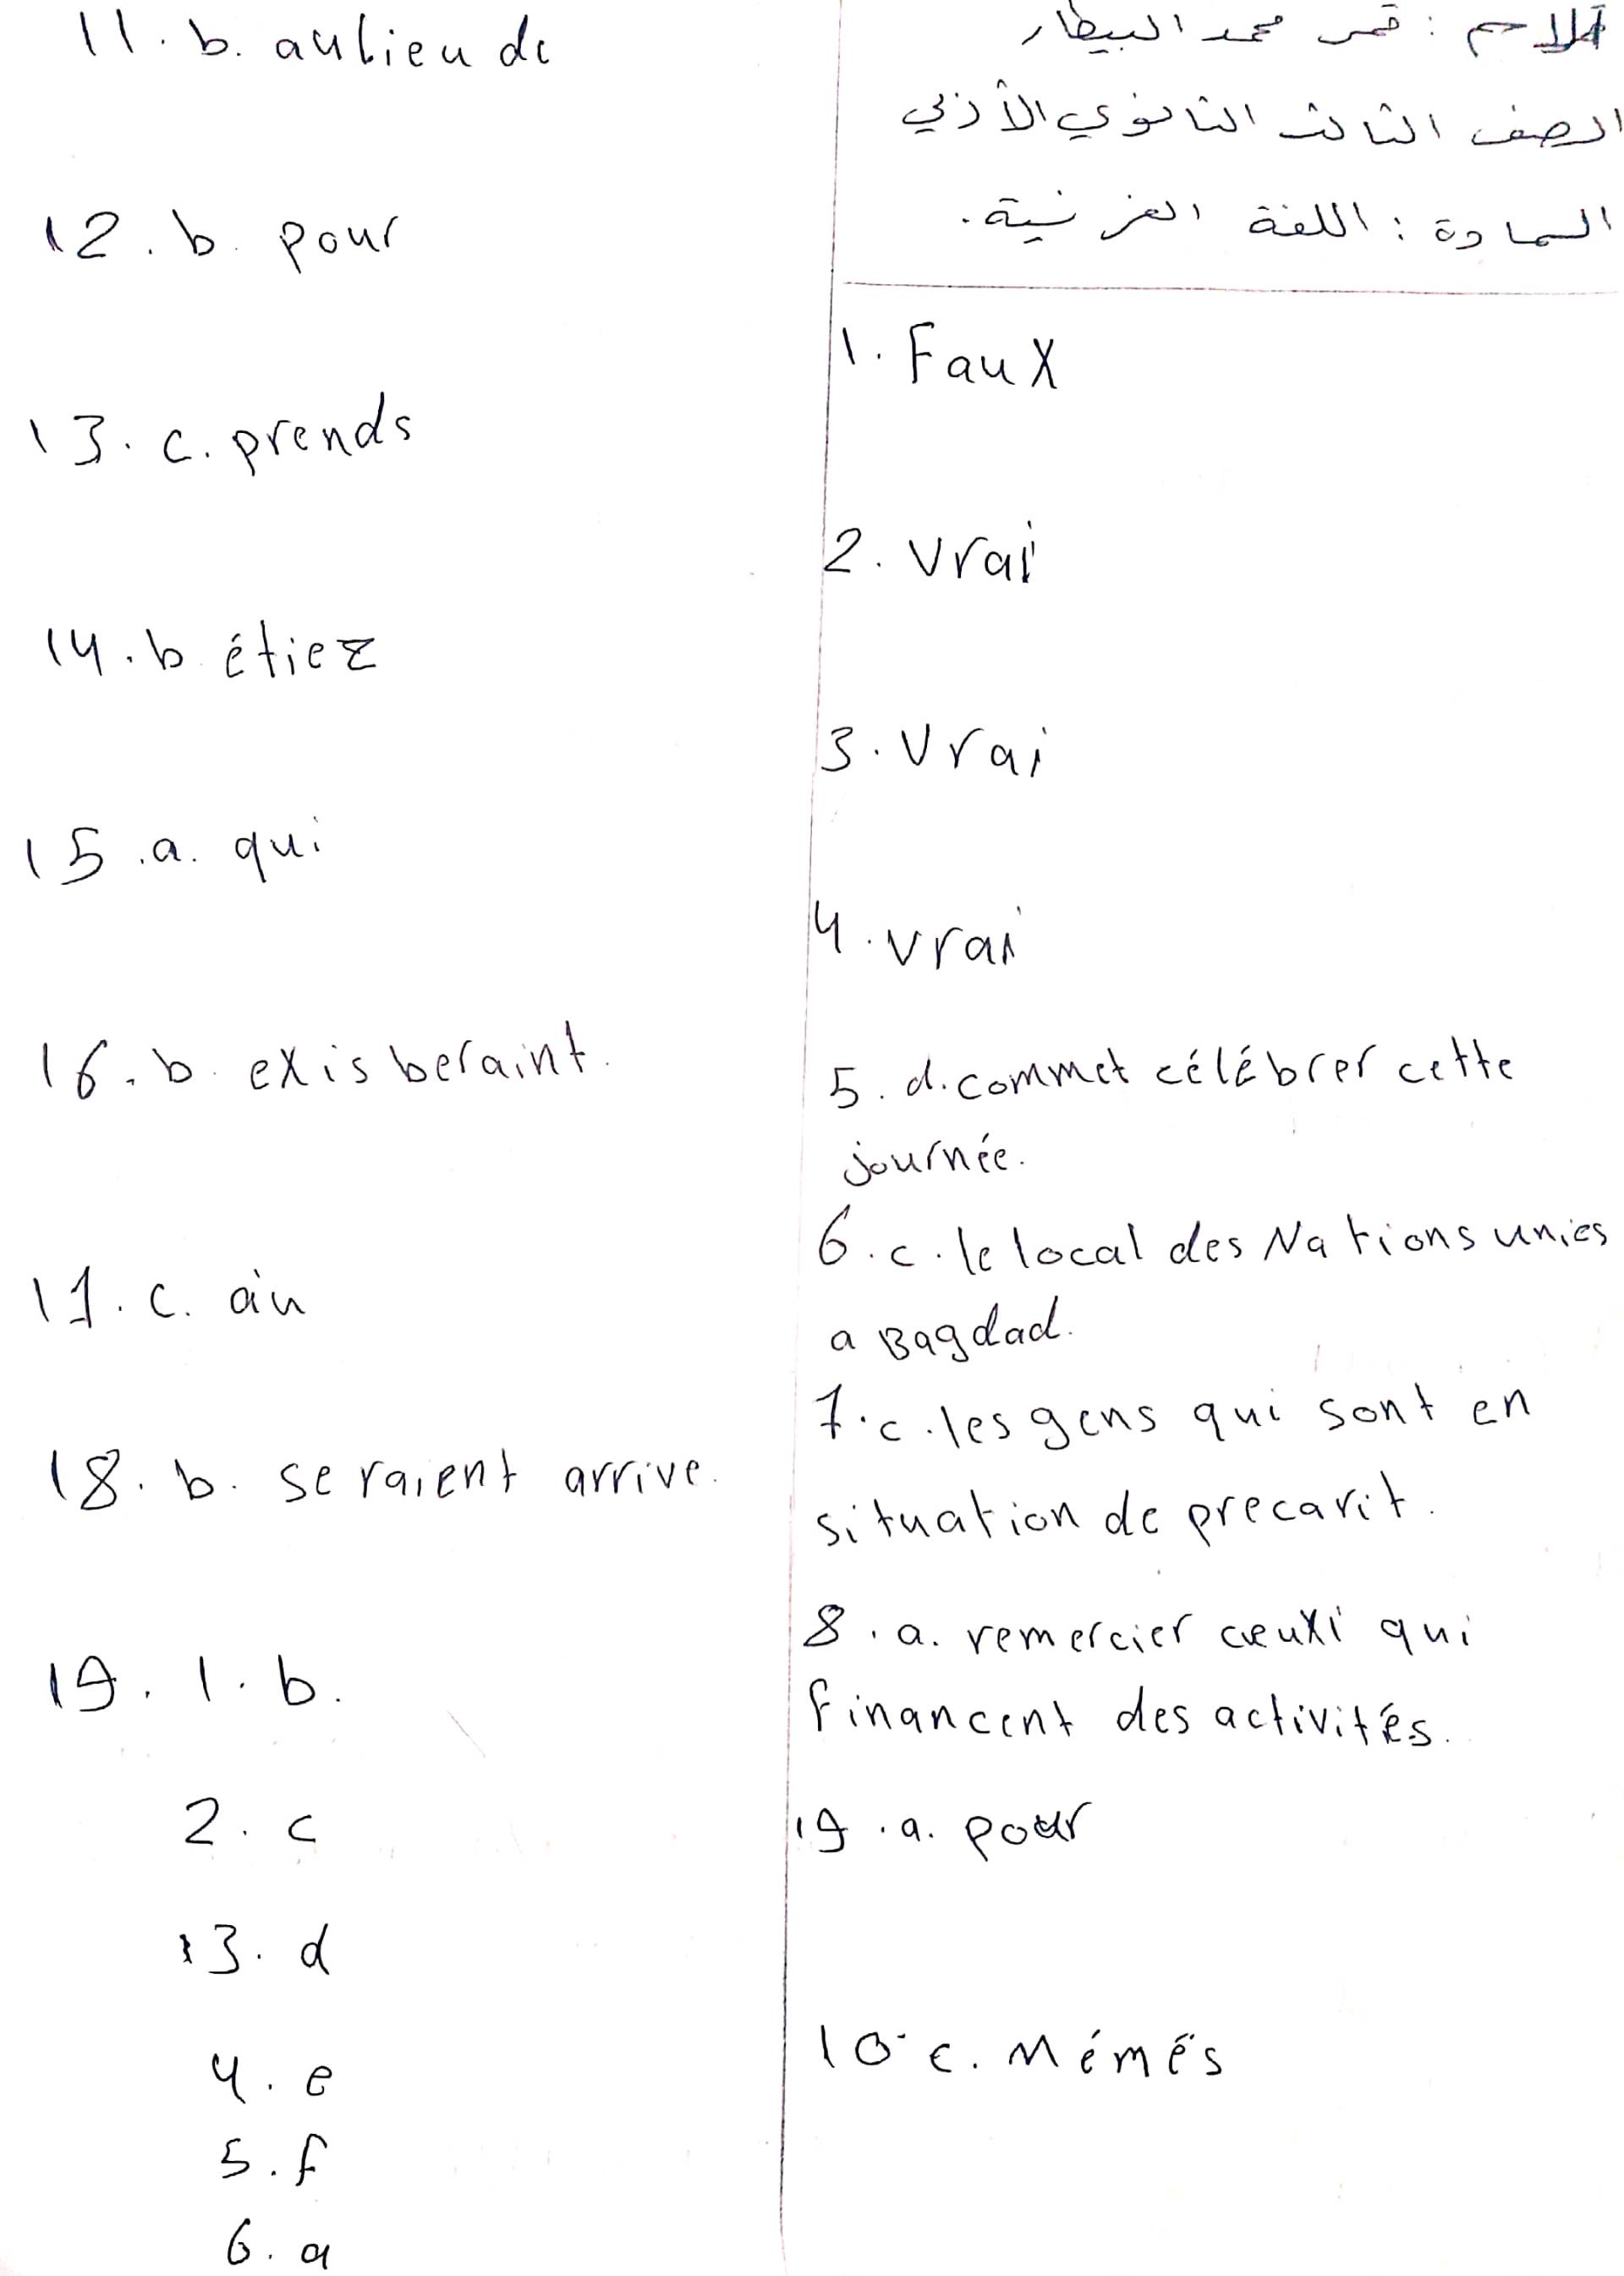 الاسم : قمر محمد البيطار
الصف الثالث الثانوي الأدبي
المادة : اللغة الفرنسية .
1. Faux
2. vrai
3. vrai
4. vrai
5. d. commet célébrer cette
journée.
6. c. le local des Nations unies
a Bagdad.
7. c. les gens qui sont en
situation de precarit.
8. a. remercier qui
financent des activités.
19. a. pour
10. c. Mémés
11. b. aulieu de
12. b. pour
13. c. prends
14. b. étiez
15. a. qui
16. b. exisberaint.
17. c.
18. b. seraient arrive.
19. 1. b.
2. c
3. d
4. e
5. f
6. a